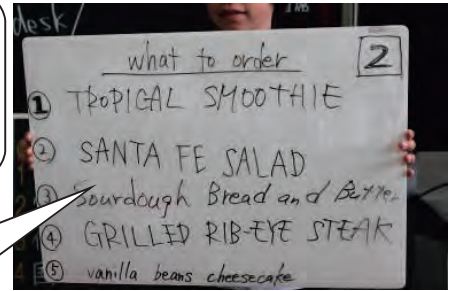 desk/
what to order
2
① TROPICAL SMOOTHIE
② SANTA FE SALAD
③ Sourdough Bread and Butter
④ GRILLED RIB-EYE STEAK
⑤ vanilla beans cheesecake